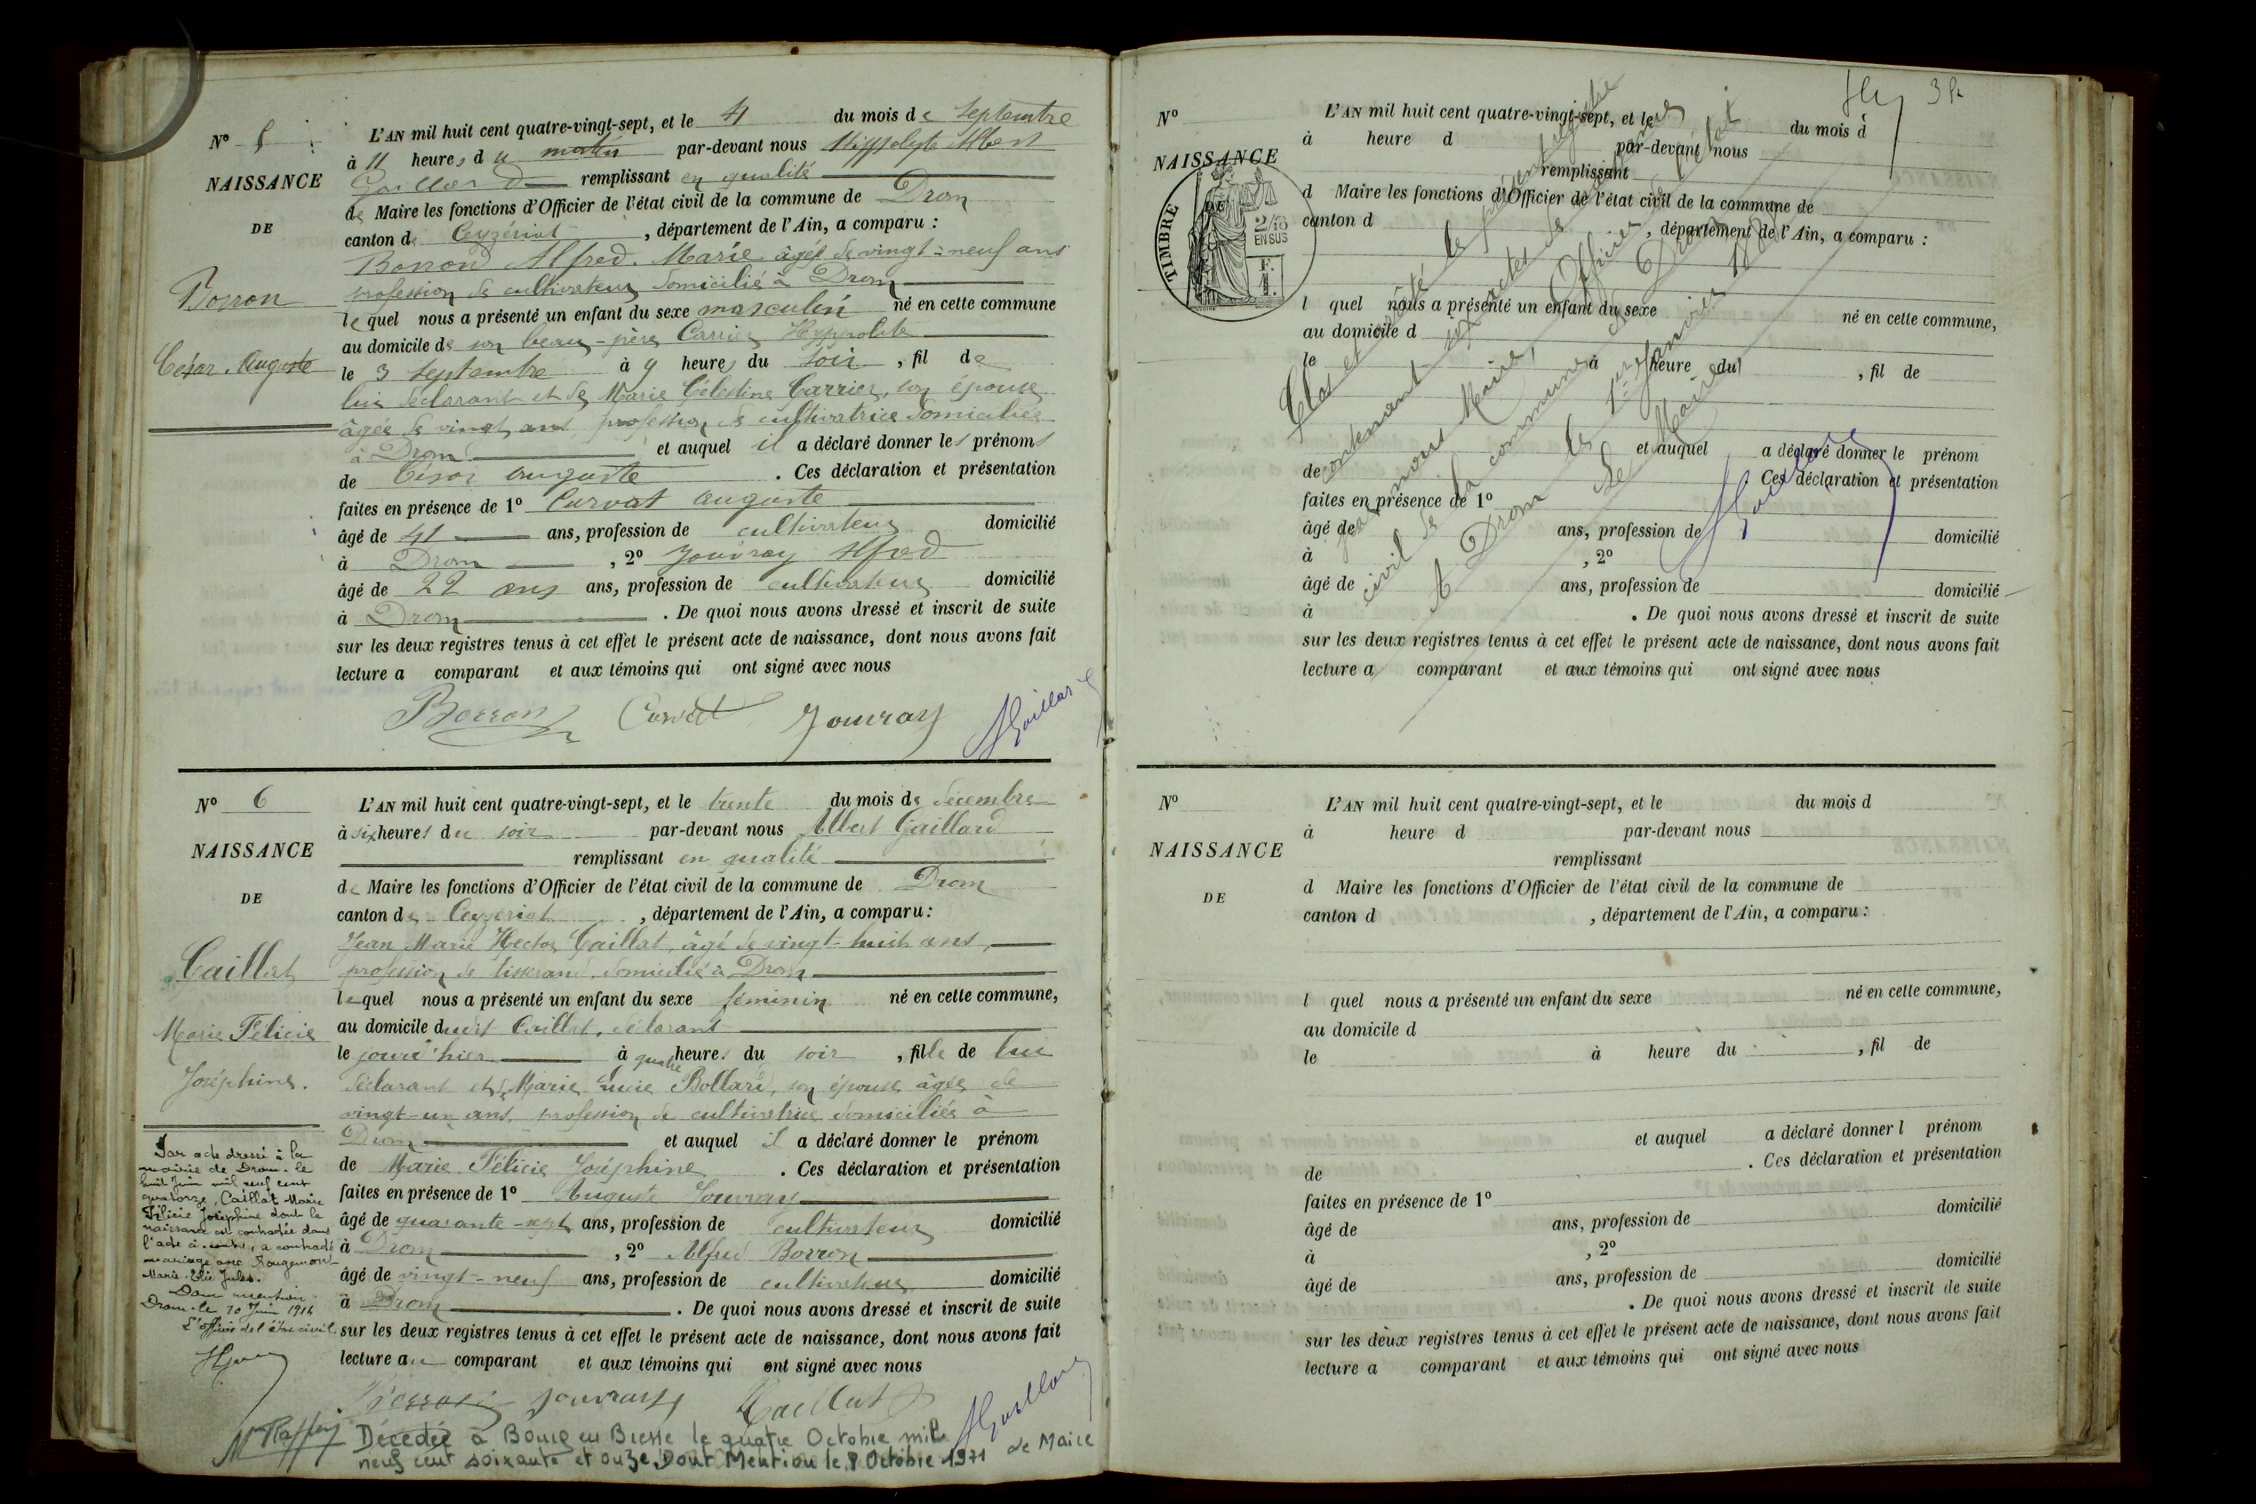 N° 5
NAISSANCE
DE
Borron
César Auguste
L'AN mil huit cent quatre-vingt-sept, et le 4 du mois de septembre
à 11 heures du matin par-devant nous Hippolyte Albert
Gaillard remplissant en qualité
de Maire les fonctions d'Officier de l'état civil de la commune de Drom
canton de Ceyzériat, département de l'Ain, a comparu :
Borron Alfred Marie âgé de vingt-neuf ans
profession de cultivateur domicilié à Drom
lequel nous a présenté un enfant du sexe masculin né en cette commune
au domicile de son beau-père Carrier Hyppolite
le 3 septembre à 9 heures du soir, fil de
lui déclarant et de Marie Célestine Carrier, son épouse
âgée de vingt ans profession de cultivatrice domiciliée
à Drom et auquel il a déclaré donner les prénoms
de César auguste. Ces déclaration et présentation
faites en présence de 1° Curvat auguste
âgé de 41 ans, profession de cultivateur domicilié
à Drom, 2° Jouvray Alfred
âgé de 22 ans ans, profession de cultivateur domicilié
à Drom. De quoi nous avons dressé et inscrit de suite
sur les deux registres tenus à cet effet le présent acte de naissance, dont nous avons fait
lecture a comparant et aux témoins qui ont signé avec nous
Borron Curvat Jouvray AGaillard
N° 6
NAISSANCE
DE
Caillat
Marie Félicie
Joséphine.
L'AN mil huit cent quatre-vingt-sept, et le trente du mois de décembre
à six heures du soir par-devant nous Albert Gaillard
remplissant en qualité
de Maire les fonctions d'Officier de l'état civil de la commune de Drom
canton de Ceyzériat, département de l'Ain, a comparu :
Jean Marie Hector Caillat, âgé de vingt-huit ans,
profession de tisserand domicilié à Drom
lequel nous a présenté un enfant du sexe féminin né en cette commune,
au domicile dudit Caillat, déclarant
le jourd'hier à quatre heures du soir, fille de lui
déclarant et de Marie Lucie Bollard, son épouse âgée de
vingt-un ans profession de cultivatrice domiciliés à
Drom et auquel il a déclaré donner le prénom
de Marie Félicie Joséphine. Ces déclaration et présentation
faites en présence de 1° Auguste Jouvray
âgé de quarante-sept ans, profession de cultivateur domicilié
à Drom, 2° Alfred Borron
âgé de vingt-neuf ans, profession de cultivateur domicilié
à Drom. De quoi nous avons dressé et inscrit de suite
sur les deux registres tenus à cet effet le présent acte de naissance, dont nous avons fait
lecture au comparant et aux témoins qui ont signé avec nous
Borron Jouvray Caillat AGaillard
Par acte dressé à la
mairie de Drom le
huit Juin mil neuf cent
quatorze, Caillat Marie
Félicie Joséphine dont la
naissance est contractée dans
l'acte ci-contre, a contracté
mariage avec Rougemont
Marie Elie Jules.
Dont mention
Drom le 10 Juin 1914
L'officier de l'état civil
Décédée à Bourg en Bresse le quatre Octobre mil
neuf cent soixante et onze. Dont Mention le 8 Octobre 1971 Le Maire
N°
NAISSANCE
DE
TIMBRE
2/10
EN SUS
L'AN mil huit cent quatre-vingt-sept, et le du mois d
à heure d par-devant nous
remplissant
d Maire les fonctions d'Officier de l'état civil de la commune de
canton d , département de l'Ain, a comparu :
l quel nous a présenté un enfant du sexe né en cette commune,
au domicile d
le à heure du , fil de
et auquel a déclaré donner le prénom
de Ces déclaration et présentation
faites en présence de 1°
âgé de ans, profession de domicilié
à , 2°
âgé de ans, profession de domicilié
à . De quoi nous avons dressé et inscrit de suite
sur les deux registres tenus à cet effet le présent acte de naissance, dont nous avons fait
lecture a comparant et aux témoins qui ont signé avec nous
Clos et arrêté le présent registre
contenant six actes de naissances
par nous Maire, Officier de l'état
civil de la commune de Drom
A Drom le 1er Janvier 1888
Le Maire
AGaillard
N°
NAISSANCE
DE
L'AN mil huit cent quatre-vingt-sept, et le du mois d
à heure d par-devant nous
remplissant
d Maire les fonctions d'Officier de l'état civil de la commune de
canton d , département de l'Ain, a comparu :
l quel nous a présenté un enfant du sexe né en cette commune,
au domicile d
le à heure du , fil de
et auquel a déclaré donner l prénom
de . Ces déclaration et présentation
faites en présence de 1°
âgé de ans, profession de domicilié
à , 2°
âgé de ans, profession de domicilié
. De quoi nous avons dressé et inscrit de suite
sur les deux registres tenus à cet effet le présent acte de naissance, dont nous avons fait
lecture a comparant et aux témoins qui ont signé avec nous